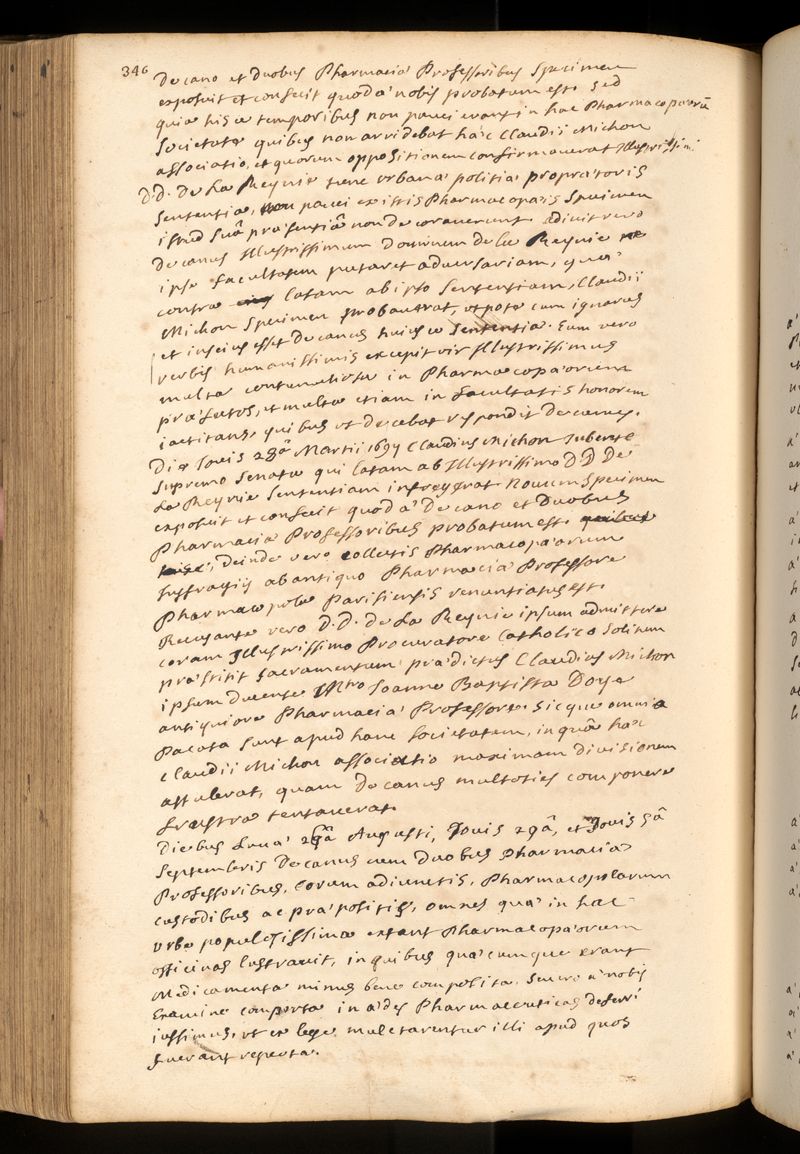 346
Decano et Duobus Pharmaciæ Professoribus Specimen
exposuit et confecit quod a nobis probatum est. Sed
quia hisce temporibus non pauci erant in hac Pharmacopæorū
Societate quibus non arridebat hæc Claudii Michon
associatio, et quorum oppositionem confirmaverat Illustrissimi
D.D. De La Reynie tunc urbanæ politiæ proprætoris
Sententia, non pauci ex istis Pharmacopæis Specimen
istud suâ præsentiâ non decoraverunt. Adivit vero
Decanus Illustrissimum Dominum de la Reynie ne
ipse Facultatem putaret adversariam, quæ
contra latam ab ipso Sententiam, Claudii
Michon Specimen probaverat, utpote cum ignarus
et inscius esset Decanus huiusce Sententiæ. Eum vero
verbis humanissimis excepit vir Illustrissimus
multa contumeliosa in Pharmacopæorum
præfectos, et multa etiam in facultatis honorem
iactitans, quibus ut decebat respondit Decanus.
Die Jovis 28â Martii 1697 Claudius Michon Jubente
Supremo Senatu qui latam ab Illustrissimo D D De
La Reynie Sententiam infregerat novum Specimen
exposuit et confecit quod a Decano et Duobus
Pharmaciæ Professoribus probatum est.
Deinde vero collectis Pharmacopæorum
suffragiis ab antiquo Pharmaciæ Professore
Pharmacopola Parisiensis renuntiatus est.
Recusante vero D.D. De La Reynie ipsum admittere
coram Illustrissimo Procuratore Catholico Solitum
præstitit sacramentum prædictus Claudius Michon
ipsum ducente Mtro Joanne Baptista Doye
antiquiore Pharmaciæ Professore. Sicque omnia
pacata sunt apud hanc societatem, in quâ hæc
Claudii Michon associatio maximam divisionem
attulerat, quam Decanus multoties componere
frustra tentaverat.
Diebus Lunæ 26â Augusti, Jovis 29â, et Jovis 5â
Septembris Decanus cum Duobus Pharmaciæ
Professoribus, eorum adiunctis, Pharmacopolarum
custodibus ac præpositis, omnes quæ in hac
urbe populosissima extant Pharmacopæorum
officinas lustravit, in quibus quæcumque erant
Medicamenta minus bene composita, severo a nobis
Examine comperta in ædes Pharmaceuticas deferri
iussimus, ut ex lege mulctarentur illi apud quos
fuerant reperta.